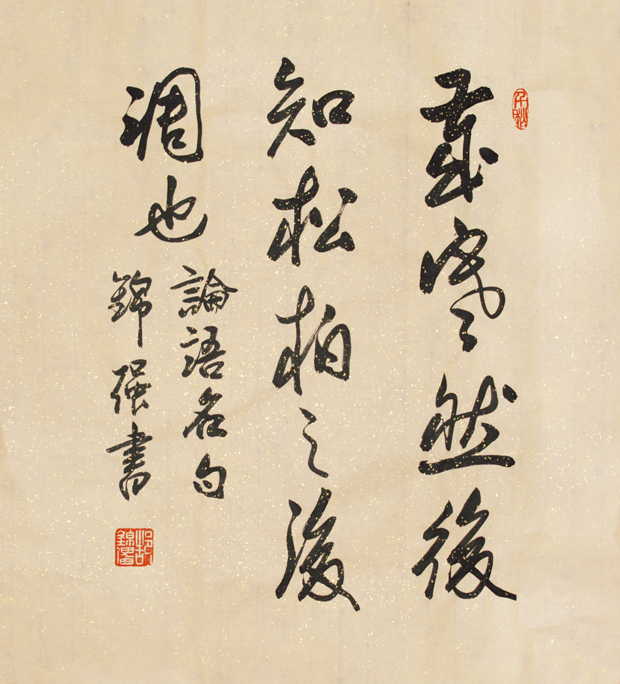 歲寒然後
知松柏之後
凋也
論語名句
錦强書